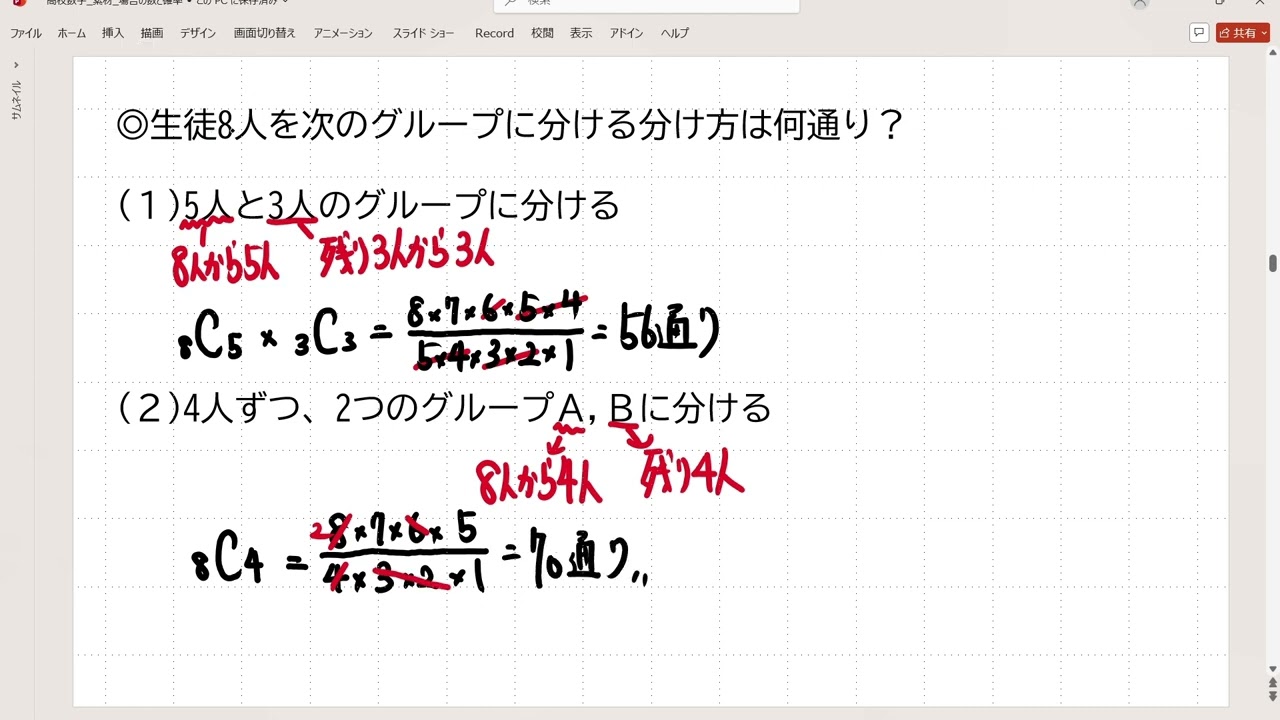 高校数学_素材_場合の数と確率 • この PC に保存済み
検索
ファイル ホーム 挿入 描画 デザイン 画面切り替え アニメーション スライド ショー Record 校閲 表示 アドイン ヘルプ
共有
サムネイル
◎生徒8人を次のグループに分ける分け方は何通り？
(１)5人と3人のグループに分ける
8人から5人 残り3人から3人
₈C₅ × ₃C₃ = (8×7×6×5×4)/(5×4×3×2×1) = 56通り
(２)4人ずつ、2つのグループA, Bに分ける
8人から4人 残り4人
₈C₄ = (8×7×6×5)/(4×3×2×1) = 70通り〃
2